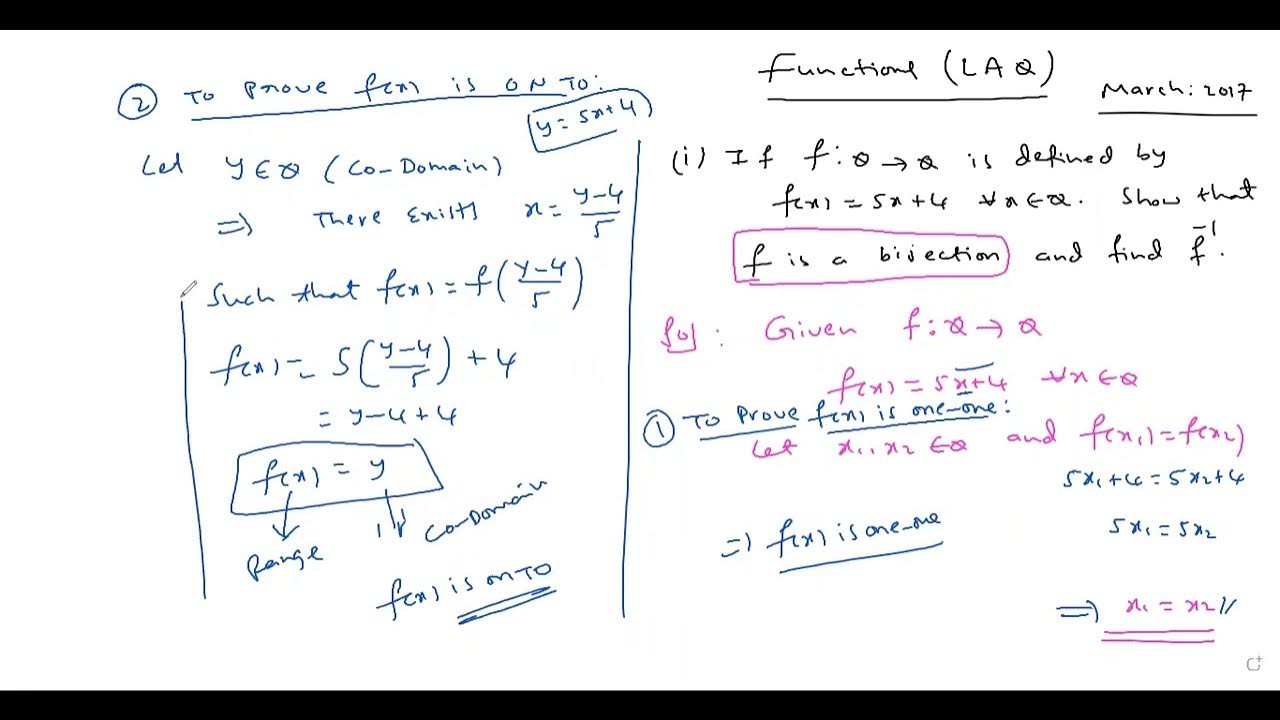 Functions (LAQ)
March: 2017
(i) If f: Q → Q is defined by
f(x) = 5x+4 ∀x∈Q. Show that
f is a bijection and find f⁻¹.
Sol: Given f: Q → Q
f(x) = 5x+4 ∀x∈Q
① To Prove f(x) is one-one:
Let x₁, x₂ ∈ Q and f(x₁) = f(x₂)
5x₁+4 = 5x₂+4
5x₁ = 5x₂
⇒ x₁ = x₂ //
⇒ f(x) is one-one
② To Prove f(x) is ONTO:
y = 5x+4
Let y∈Q (Co-Domain)
⇒ There exists x = (y-4)/5
Such that f(x) = f((y-4)/5)
f(x) = 5((y-4)/5) + 4
= y-4+4
f(x) = y
Range
Co-Domain
f(x) is onto